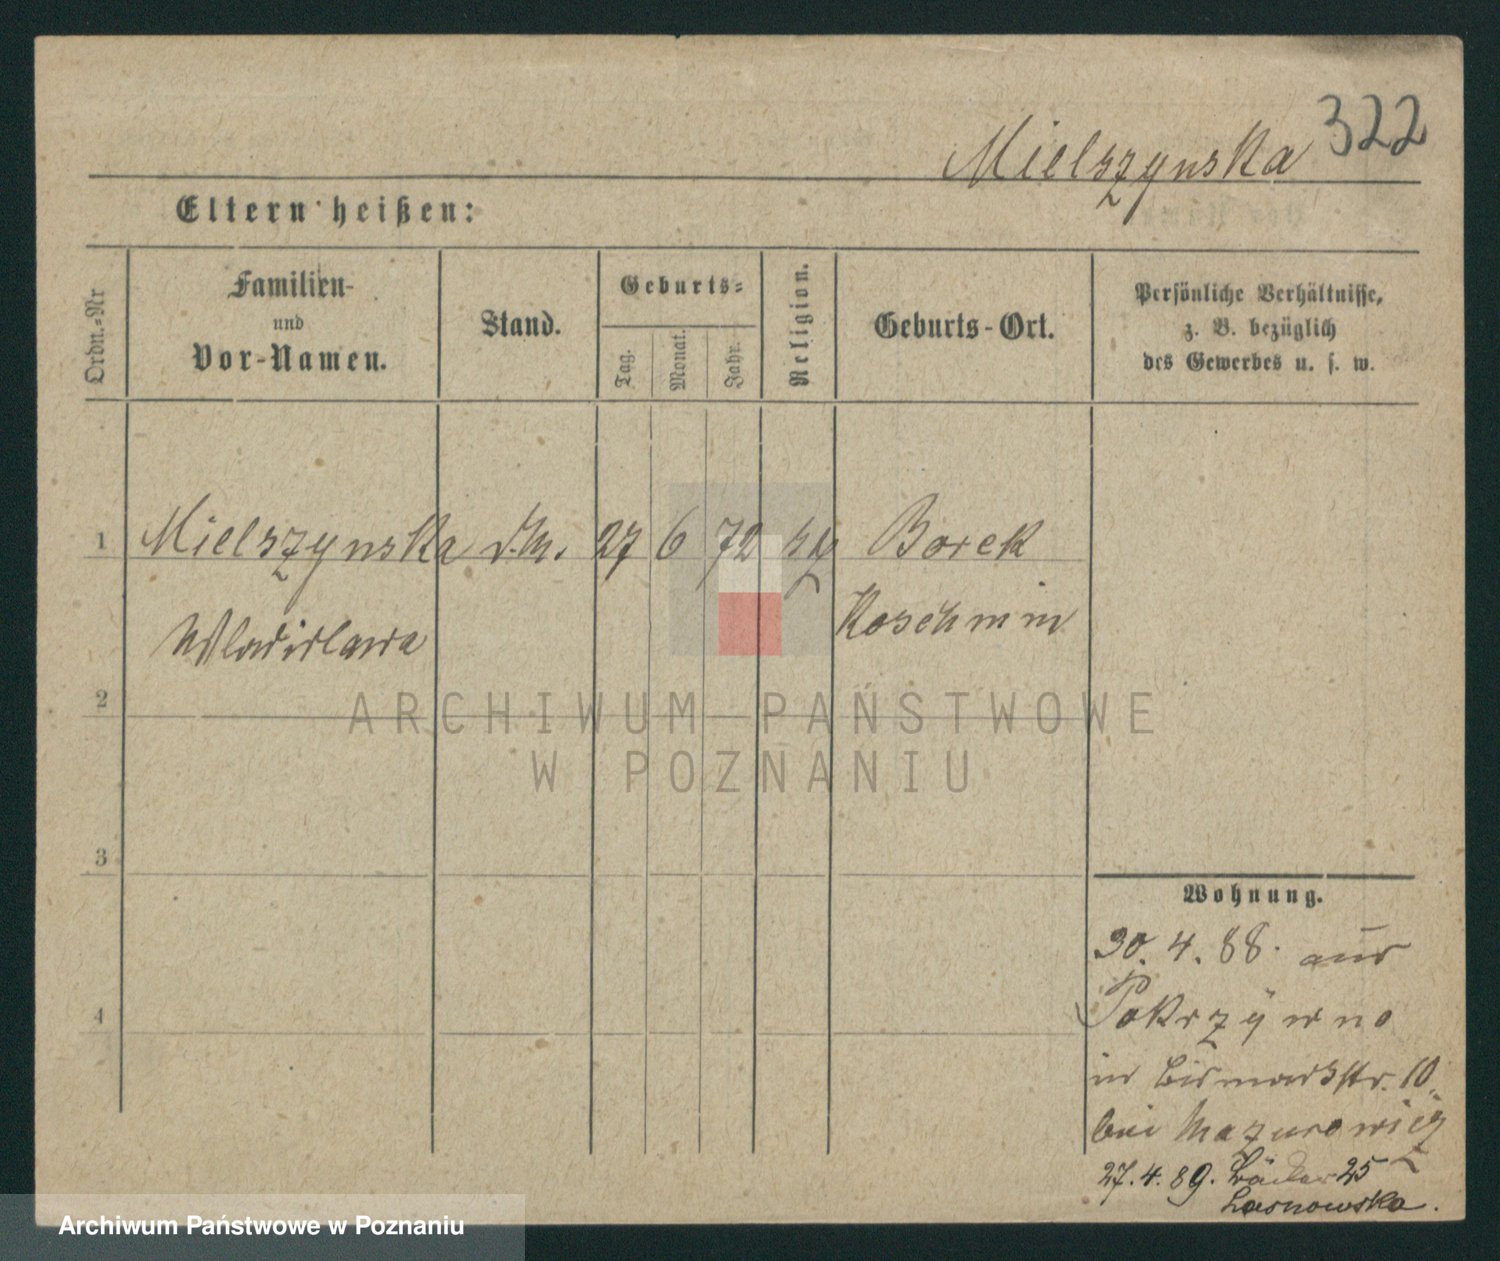 322
Mielszynska
Eltern heißen:
Ordn.-Nr
Familien-
und
Vor-Namen.
Stand.
Geburts-
Tag.
Monat.
Jahr.
Religion.
Geburts-Ort.
Persönliche Verhältnisse,
z. B. bezüglich
des Gewerbes u. s. w.
1 Mielszynska d.M. 27 6 72 k. Borek
Wladislawa Koschmin
2
3
4
ARCHIWUM PAŃSTWOWE
W POZNANIU
Wohnung.
30. 4. 88. aus
Pokrzywno
in Bismarkstr. 10.
bei Mazurowicz
27. 4. 89. Bäcker 25
Losnowska.
Archiwum Państwowe w Poznaniu